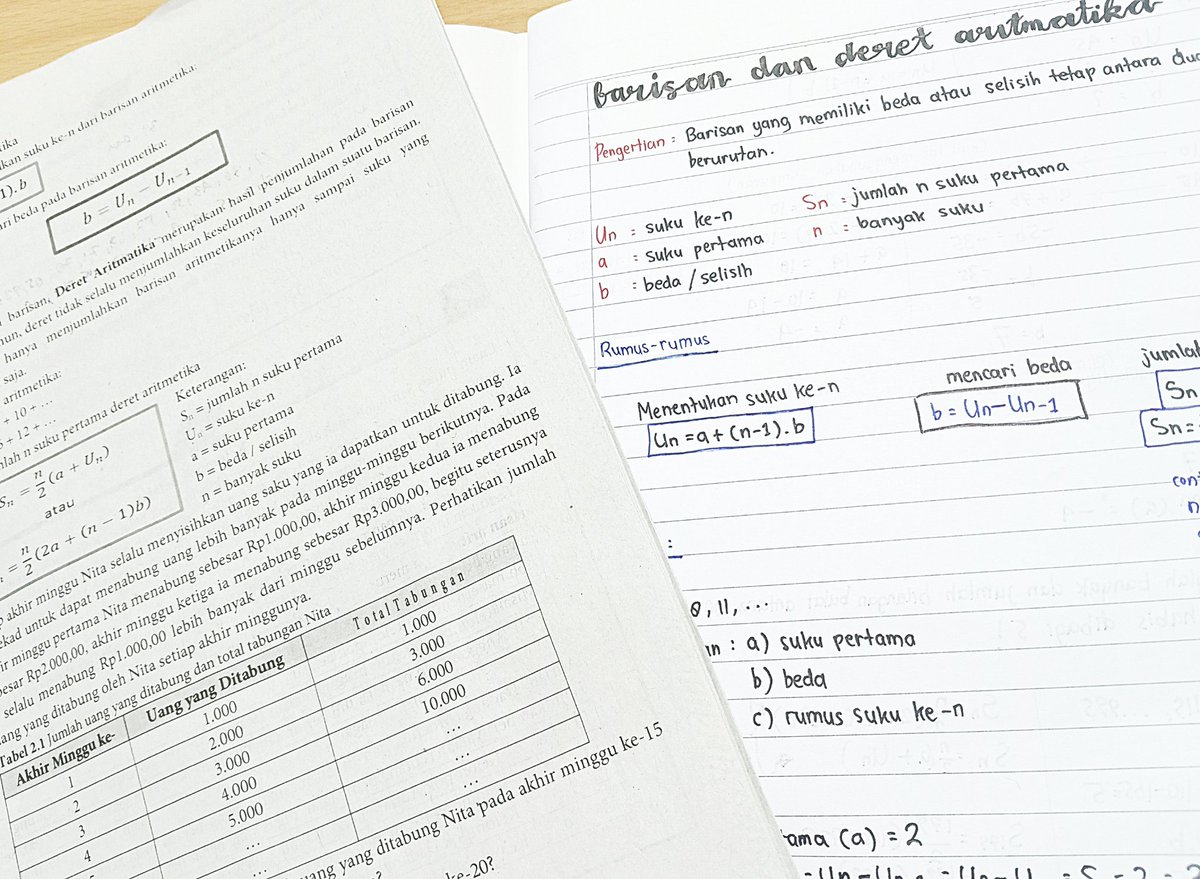 kan suku ke-n dari barisan aritmetika:
1).b
ri beda pada barisan aritmetika:
b = Uₙ − Uₙ₋₁
barisan, Deret Aritmatika merupakan hasil penjumlahan pada barisan
un, deret tidak selalu menjumlahkan keseluruhan suku dalam suatu barisan.
hanya menjumlahkan barisan aritmetikanya hanya sampai suku yang
saja.
aritmetika:
+ 10 + ...
5 + 12 + ...
n suku pertama deret aritmetika
Sₙ = n/2 (a + Uₙ)
atau
= n/2 (2a + (n − 1)b)
Keterangan:
Sₙ = jumlah n suku pertama
Uₙ = suku ke-n
a = suku pertama
b = beda / selisih
n = banyak suku
akhir minggu Nita selalu menyisihkan uang saku yang ia dapatkan untuk ditabung. Ia
ekad untuk dapat menabung uang lebih banyak pada minggu-minggu berikutnya. Pada
ir minggu pertama Nita menabung sebesar Rp1.000,00, akhir minggu kedua ia menabung
esar Rp2.000,00, akhir minggu ketiga ia menabung sebesar Rp3.000,00, begitu seterusnya
selalu menabung Rp1.000,00 lebih banyak dari minggu sebelumnya. Perhatikan jumlah
ang yang ditabung oleh Nita setiap akhir minggunya.
Tabel 2.1 Jumlah uang yang ditabung dan total tabungan Nita
Akhir Minggu ke- Uang yang Ditabung Total Tabungan
1 1.000 1.000
2 2.000 3.000
3 3.000 6.000
4 4.000 10.000
5.000 ...
... ...
... ...
uang yang ditabung Nita pada akhir minggu ke-15
ke-20?
barisan dan deret aritmatika
Pengertian : Barisan yang memiliki beda atau selisih tetap antara dua
berurutan.
Un : suku ke-n
a : suku pertama
b : beda / selisih
Sn : jumlah n suku pertama
n : banyak suku
Rumus-rumus
Menentukan suku ke-n
Un = a + (n-1).b
mencari beda
b = Un − Un-1
jumlah
Sn
Sn =
:
8, 11, ...
a) suku pertama
b) beda
c) rumus suku ke-n
ama (a) = 2